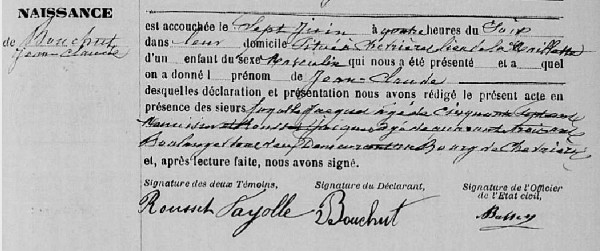 NAISSANCE
de Bouchut
Jean-Claude
est accouchée le sept Juin à onze heures du Soir
dans leur domicile situé à Chevrières lieu de la
d'un enfant du sexe Masculin qui nous a été présenté et a quel
on a donné l prénom de Jean-Claude
desquelles déclaration et présentation nous avons rédigé le présent acte en
présence des sieurs Fayolle Jacques âgé de cinquante sept ans
Menuisier et Rousset Jacques âgé de cinquante trois ans
Boulanger tous deux Demeurant au Bourg de Chevrières
et, après lecture faite, nous avons signé.
Signature des deux Témoins, Signature du Déclarant, Signature de l'Officier
de l'Etat civil,
Rousset Fayolle Bouchut